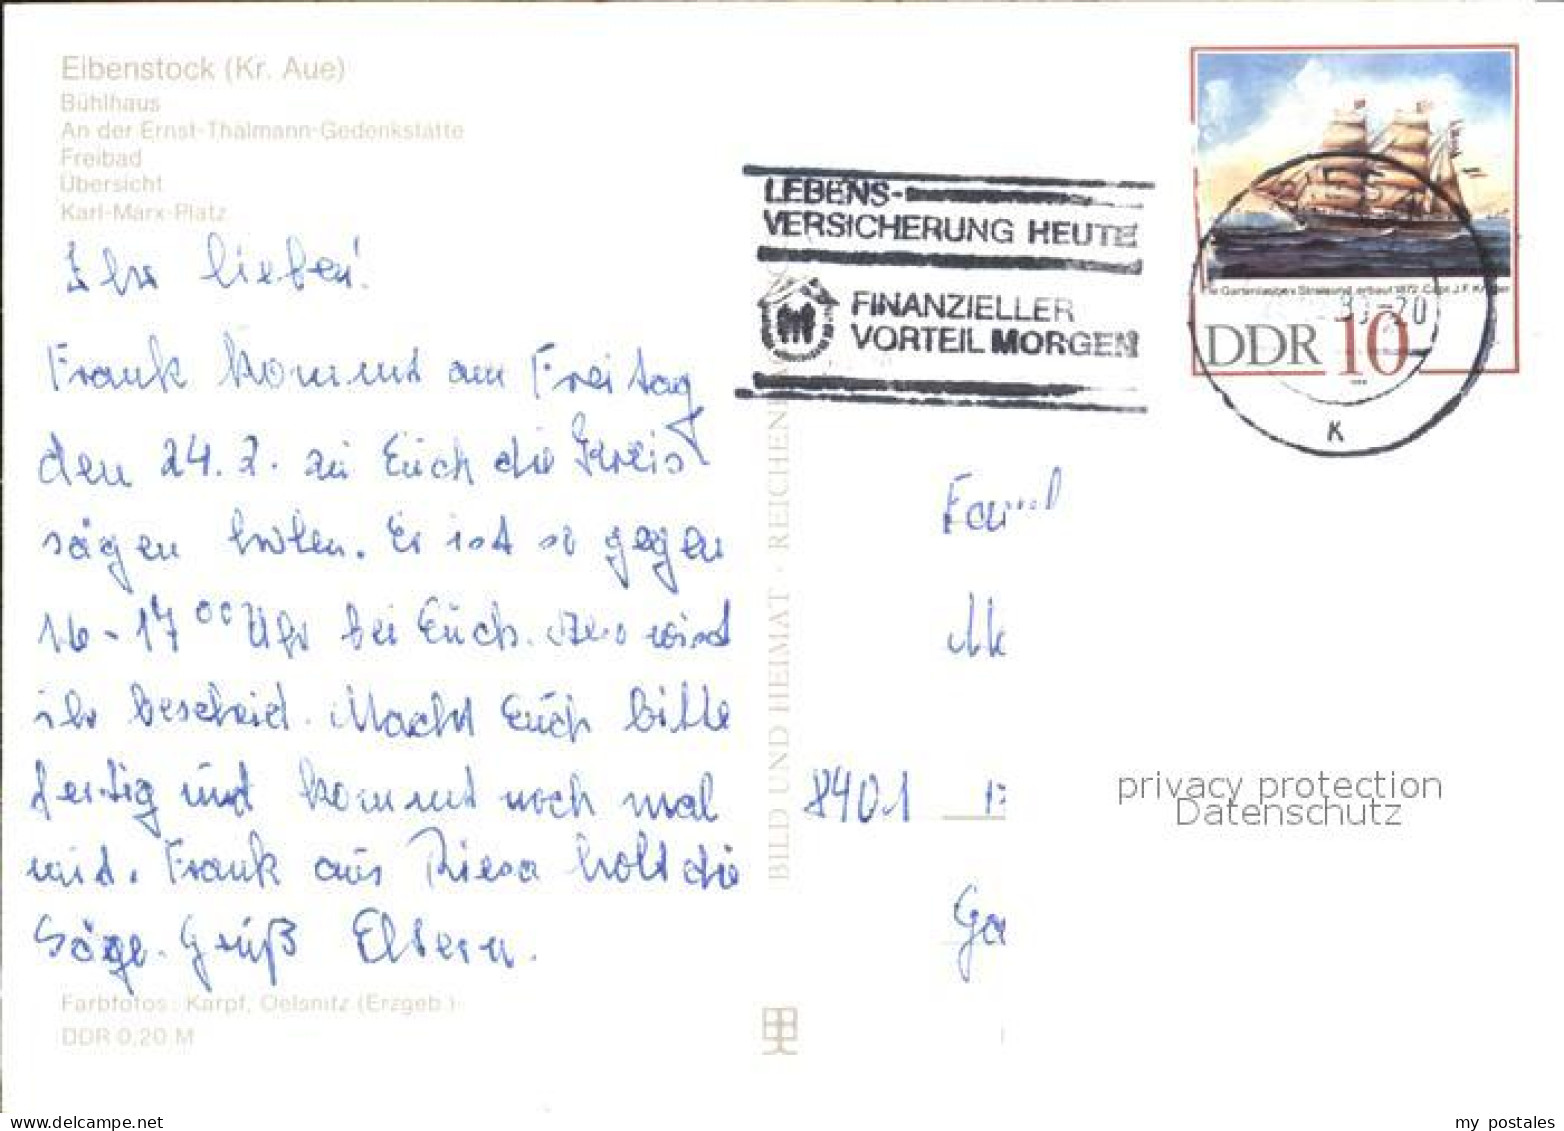 Eibenstock (Kr. Aue)
Bühlhaus
An der Ernst-Thälmann-Gedenkstätte
Freibad
Übersicht
Karl-Marx-Platz
Ihr lieben!
Frank kommt am Freitag
den 24. 2. zu Euch die Kreis
sägen holen. Er ist so gegen
16-17 00 Uhr bei Euch. wißt
ihr bescheid. Macht Euch bitte
fertig und kommt noch mal
mit. Frank aus Riesa holt die
Säge. Gruß Eltern.
Farbfotos: Karpf, Oelsnitz (Erzgeb.)
DDR 0,20 M
BILD UND HEIMAT · REICHEN
LEBENS-
VERSICHERUNG HEUTE
FINANZIELLER
VORTEIL MORGEN
Stralsund, erbaut 1872 Capt. J. F. Krüger
DDR 10
-20
K
Fam
8401
privacy protection
Datenschutz
www.delcampe.net
my_postales